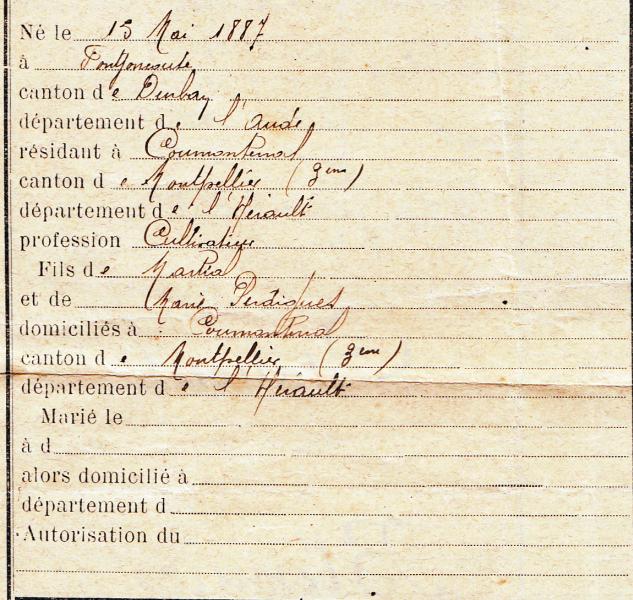 Né le 15 Mai 1887
à Fontjoncouse
canton de Durban
département de l'Aude
résidant à Cournonterral
canton de Montpellier (3eme)
département de l'Hérault
profession Cultivateur
Fils de Martial
et de Marie
domiciliés à Cournonterral
canton de Montpellier (3eme)
département de l'Hérault
Marié le
à d
alors domicilié à
département d
Autorisation du